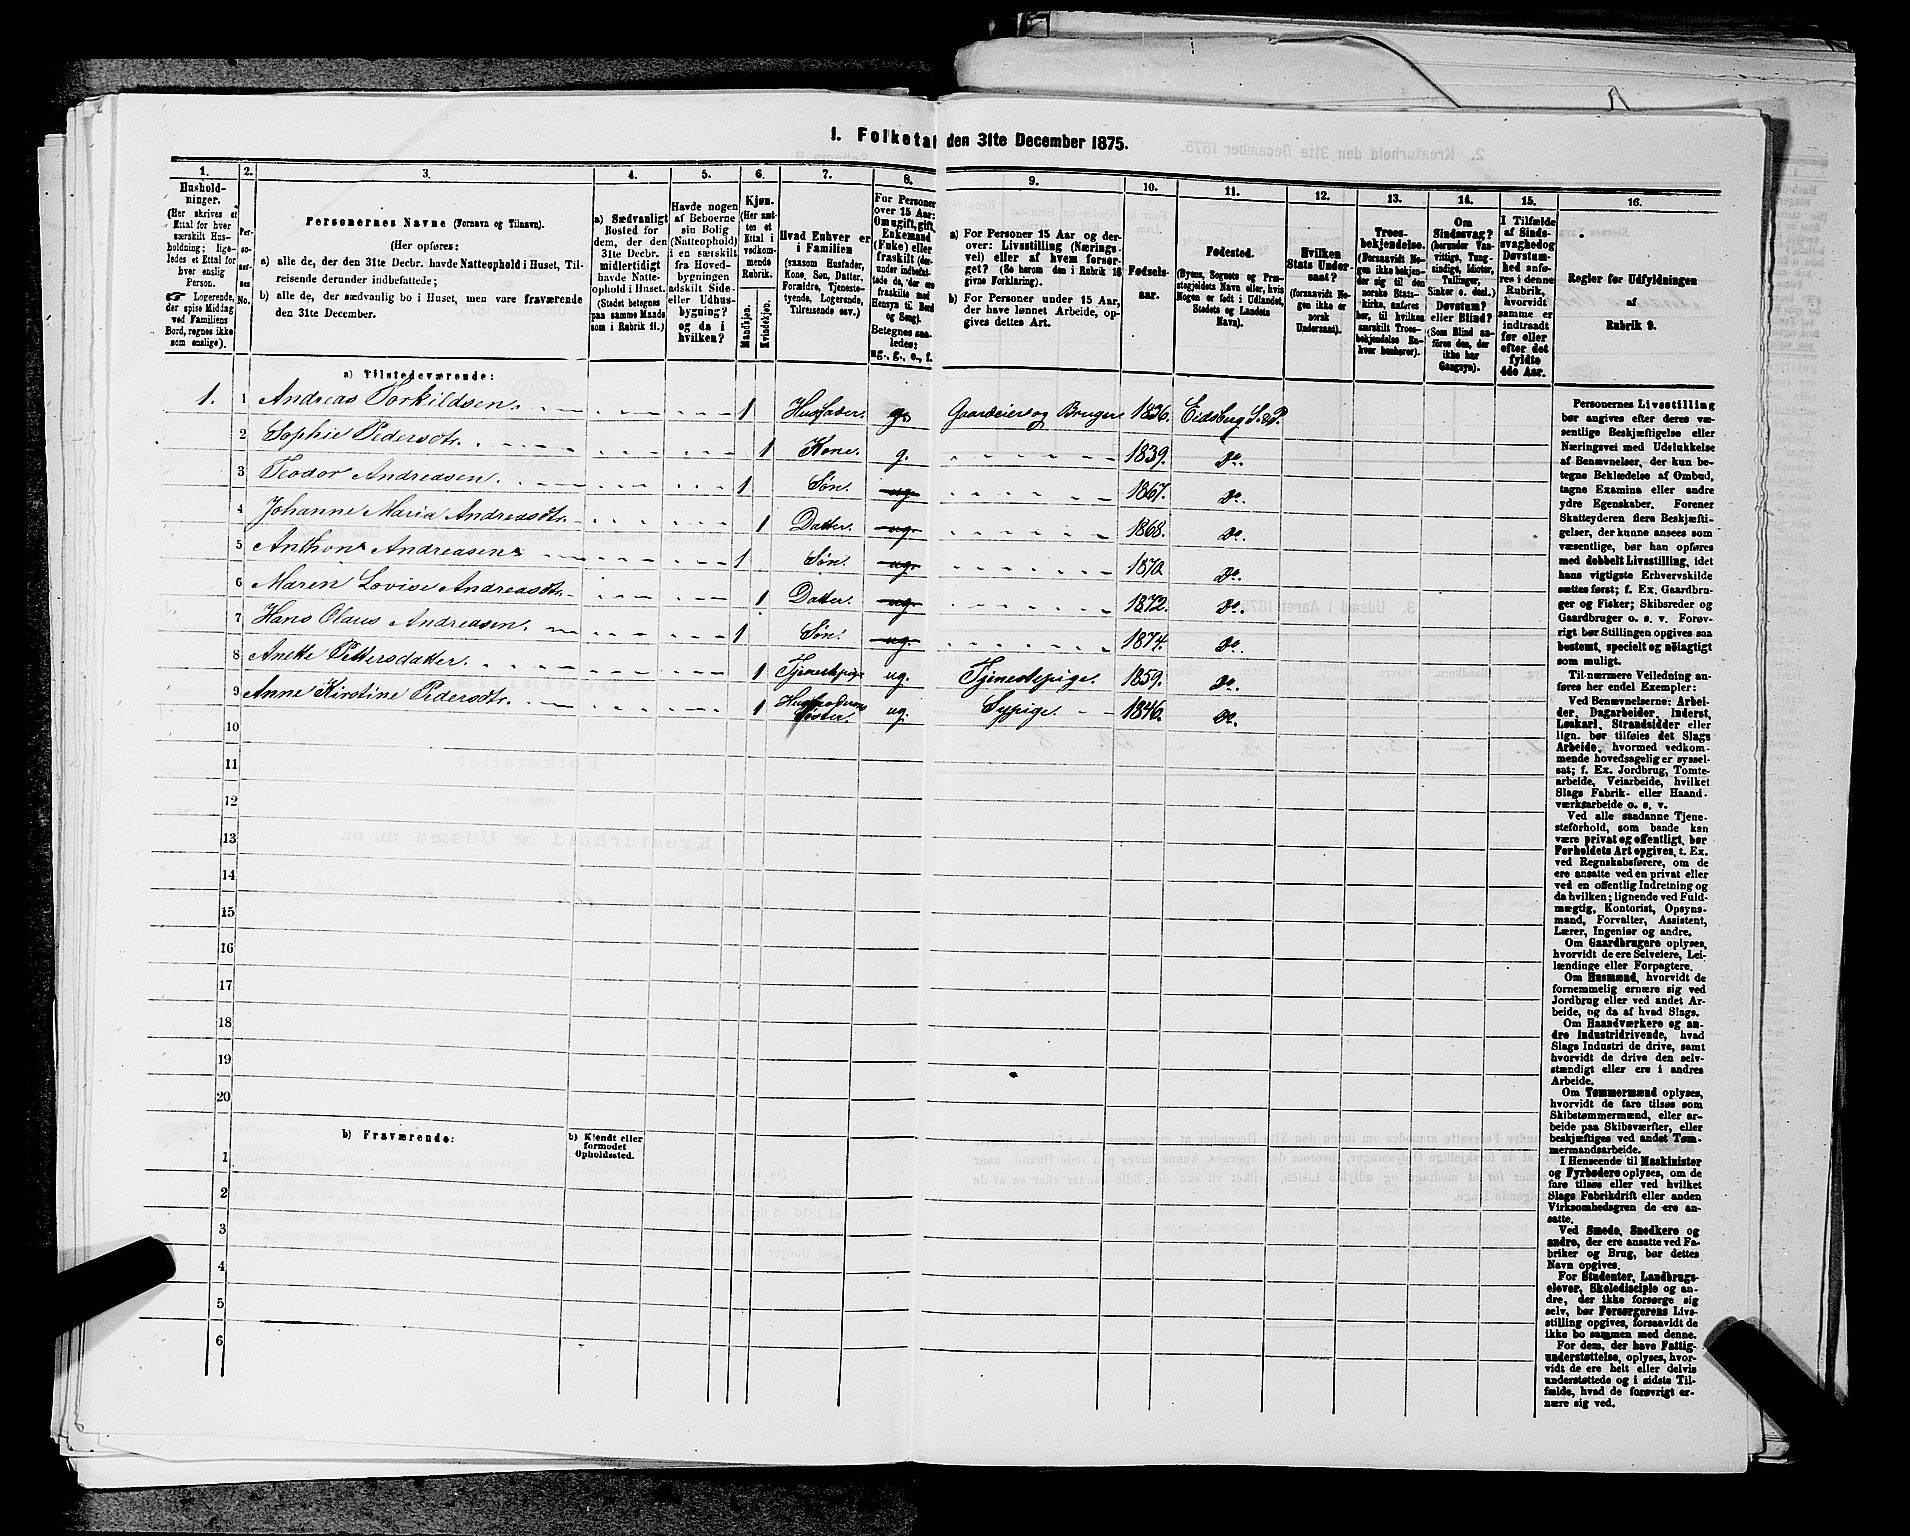 1. Folketal den 31te December 1875.
1.
2.
3.
4.
5.
6.
7.
8.
9.
10.
11.
12.
13.
14.
15.
16.
Hushold-
ninger.
(Her skrives et
Ettal for hver
særskilt Hus-
holdning; lige-
ledes et Ettal for
hver enslig
Person.
☞ Logerende,
der spise Middag
ved Familiens
Bord, regnes ikke
som enslige).
Per-
soner-
nes
No.
Personernes Navne (Fornavn og Tilnavn).
(Her opføres:
a) alle de, der den 31te Decbr. havde Natteophold i Huset, Til-
reisende derunder indbefattede;
b) alle de, der sædvanlig bo i Huset, men vare fraværende
den 31te December.
a) Sædvanligt
Bosted for
dem, der den
31te Decbr.
midlertidigt
havde Natte-
ophold i Huset.
(Stedet betegnes
paa samme Maade
som i Rubrik 11.)
Havde nogen
af Beboerne
sin Bolig
(Natteophold)
i en særskilt
fra Hoved-
bygningen
adskilt Side-
eller Udhus-
bygning?
og da i
hvilken?
Kjøn.
(Her sæt-
tes et
Ettal i
vedkom-
mende
Rubrik.
Mandkjøn.
Kvindekjøn.
Hvad Enhver er
i Familien
(saasom Husfader,
Kone, Søn, Datter,
Forældre, Tjeneste-
tyende, Logerende,
Tilreisende osv.)
For Personer
over 15 Aar:
Om ugift, gift,
Enkemand
(Enke) eller
fraskilt (der-
under indbefat-
tede de, der ere
fraskilte med
Hensyn til Bord
og Seng).
Betegnes saa-
ledes:
ug., g., e., f.
a) For Personer 15 Aar og der-
over: Livsstilling (Nærings-
vei) eller af hvem forsør-
get? (Se herom den i Rubrik 16
givne Forklaring).
b) For Personer under 15 Aar,
der have lønnet Arbeide, op-
gives dettes Art.
Fødsels-
aar.
Fødested.
(Byens, Sognets og Præ-
stegjeldets Navn eller, hvis
Nogen er født i Udlandet,
Stedets og Landets
Navn).
Hvilken
Stats Under-
saat?
(forsaavidt No-
gen ikke er
norsk
Undersaat).
Troes-
bekjendelse.
(Forsaavidt No-
gen ikke bekjen-
der sig til den
norske Stats-
kirke, anføres
her, til hvilken
særskilt Troes-
bekjendelse En-
hver henhører).
Om
Sindssvag?
(herunder Van-
vittige, Tung-
sindige, Idioter,
Tullinger,
Sinker o. desl.)
Døvstum?
eller Blind?
(Som Blind an-
føres den, der
ikke har
Gangsyn).
I Tilfælde
af Sinds-
svaghed og
Døvstum-
hed anfø-
res i denne
Rubrik,
hvorvidt
samme er
indtraadt
før eller
efter det
fyldte
4de Aar.
Regler for Udfyldningen
af
Rubrik 9.
a) Tilstedeværende:
1. 1 Andreas Torkildsen. 1 Husfader. g. Gaardeier og Bruger 1836. Eidsberg S. & P.
2 Sophie Pedersdtr. 1 Kone. g. 1839. Do.
3 Teodor Andreasen. 1 Søn. ug. 1867. Do.
4 Johanne Maria Andreasdtr. 1 Datter. ug. 1868. Do.
5 Anthon Andreasen 1 Søn. ug. 1870. Do.
6 Maren Lovise Andreasdtr. 1 Datter. ug. 1872. Do.
7 Hans Olaus Andreasen. 1 Søn. ug. 1874. Do.
8 Anette Pettersdatter. 1 Tjenestepige ug. Tjenestepige. 1859. Do.
9 Anne Kirstine Pedersdtr. 1 Husfaderens Søster. ug. Sypige. 1846. Do.
10
11
12
13
14
15
16
17
18
19
20
b) Fraværende:
b) Kjendt eller
formodet
Opholdssted.
1
2
3
4
5
6
Personernes Livsstilling
bør angives efter deres væ-
sentlige Beskjæftigelse eller
Næringsvei med Udelukkelse
af Benævnelser, der kun be-
tegne Beklædelse af Ombud,
tagne Examina eller andre
ydre Egenskaber. Forener
Skatteyderen flere Beskjæfti-
gelser, der kunne ansees som
væsentlige, bør han opføres
med dobbelt Livsstilling, idet
hans vigtigste Erhvervskilde
sættes først; f. Ex. Gaardbru-
ger og Fisker; Skibsreder og
Gaardbruger o. s. v. Forøv-
rigt bør Stillingen opgives saa
bestemt, specielt og nøiagtigt
som muligt.
Til nærmere Veiledning an-
føres her endel Exempler:
Ved Benævnelserne: Arbei-
der, Dagarbeider, Inderst,
Løskarl, Strandsidder eller
lign. bør tilføies det Slags
Arbeide, hvormed vedkom-
mende hovedsagelig er syssel-
sat; f. Ex. Jordbrug, Tomte-
arbeide, Veiarbeide, hvilket
Slags Fabrik- eller Haand-
værksarbeide o. s. v.
Ved alle saadanne Tjene-
steforhold, som baade kan
være privat og offentligt, bør
Forholdets Art opgives, t. Ex.
ved Regnskabsførere, om de
ere ansatte ved en privat eller
ved en offentlig Indretning og
da hvilken; lignende ved Fuld-
mægtig, Kontorist, Opsyns-
mand, Forvalter, Assistent,
Lærer, Ingeniør og andre.
Om Gaardbrugere oplyses,
hvorvidt de ere Selveiere, Lei-
lændinge eller Forpagtere.
Om Husmænd, hvorvidt de
fornemmelig ernære sig ved
Jordbrug eller ved andet Ar-
beide, og da af hvad Slags.
Om Haandværkere og an-
dre Industridrivende, hvad
Slags Industri de drive, samt
hvorvidt de drive den selv-
stændigt eller ere i andres
Arbeide.
Om Tømmermænd oplyses,
hvorvidt de fare tilsøs som
Skibstømmermænd, eller ar-
beide paa Skibsværfter, eller
beskjæftiges ved andet Tøm-
mermandsarbeide.
I Henseende til Maskinister
og Fyrbødere oplyses, om de
fare tilsøs eller ved hvilket
Slags Fabrikdrift eller anden
Virksomhedsgren de ere an-
satte.
Ved Smede, Snedkere og
andre, der ere ansatte ved Fa-
briker og Brug, bør dettes
Navn opgives.
For Studenter, Landbrugs-
elever, Skoledisciple og an-
dre, der ikke forsørge sig
selv, bør Forsørgerens Livs-
stilling opgives, forsaavidt de
ikke bo sammen med denne.
For dem, der have Fattig-
understøttelse, oplyses, hvor-
vidt de ere helt eller delvis
understøttede og i sidste Til-
fælde, hvad de forøvrigt er-
nære sig ved.